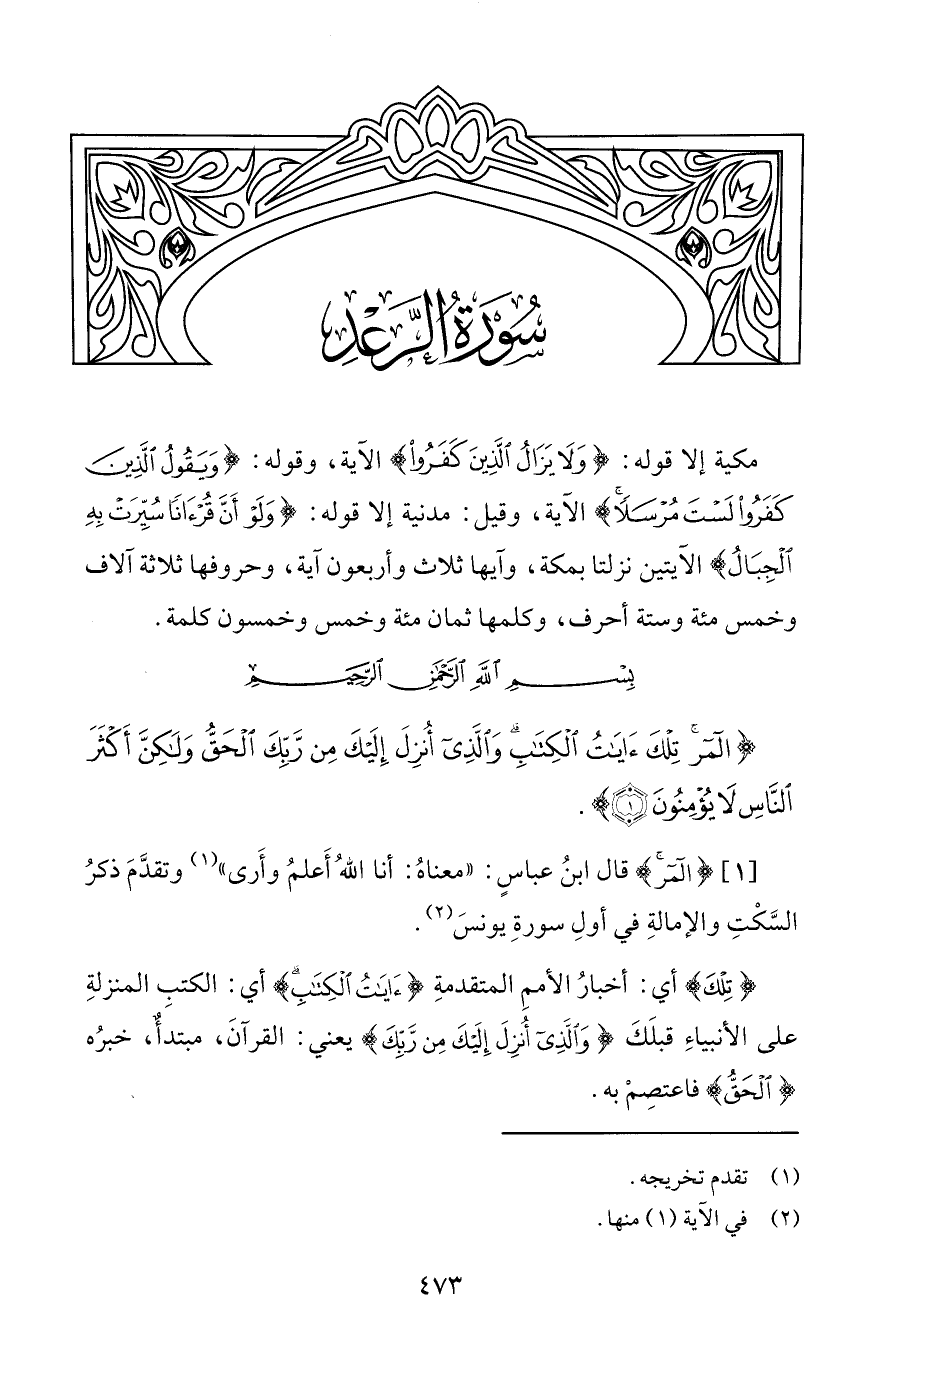 سُورَةُ الرَّعْدِ
مكية إلا قوله: ﴿وَلَا يَزَالُ ٱلَّذِينَ كَفَرُوا۟﴾ الآية، وقوله: ﴿وَيَقُولُ ٱلَّذِينَ
كَفَرُوا۟ لَسْتَ مُرْسَلًاۚ﴾ الآية، وقيل: مدنية إلا قوله: ﴿وَلَوْ أَنَّ قُرْءَانًا سُيِّرَتْ بِهِ
ٱلْجِبَالُ﴾ الآيتين نزلتا بمكة، وآيها ثلاث وأربعون آية، وحروفها ثلاثة آلاف
وخمس مئة وستة أحرف، وكلمها ثمان مئة وخمس وخمسون كلمة.
بِسْمِ ٱللَّهِ ٱلرَّحْمَٰنِ ٱلرَّحِيمِ
﴿الٓمٓرۚ تِلْكَ ءَايَٰتُ ٱلْكِتَٰبِۗ وَٱلَّذِىٓ أُنزِلَ إِلَيْكَ مِن رَّبِّكَ ٱلْحَقُّ وَلَٰكِنَّ أَكْثَرَ
ٱلنَّاسِ لَا يُؤْمِنُونَ ١﴾.
[١] ﴿الٓمٓرۚ﴾ قال ابنُ عباسٍ: «معناهُ: أنا اللهُ أَعلمُ وأَرى»(١) وتقدَّمَ ذكرُ
السَّكْتِ والإمالةِ في أولِ سورةِ يونسَ(٢).
﴿تِلْكَ﴾ أي: أخبارُ الأممِ المتقدمةِ ﴿ءَايَٰتُ ٱلْكِتَٰبِۗ﴾ أي: الكتبِ المنزلةِ
على الأنبياءِ قبلَكَ ﴿وَٱلَّذِىٓ أُنزِلَ إِلَيْكَ مِن رَّبِّكَ﴾ يعني: القرآنَ، مبتدأٌ، خبرُه
﴿ٱلْحَقُّ﴾ فاعتصِمْ به.
(١) تقدم تخريجه.
(٢) في الآية (١) منها.
٤٧٣